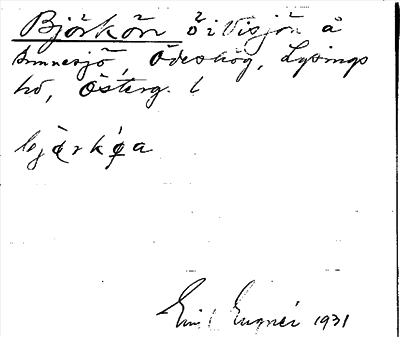 Björkön ö i Visjön å
Ammesjö, Ödeshög, Lysings
hd, Österg. l
björkøa
Emil Eugnér 1931